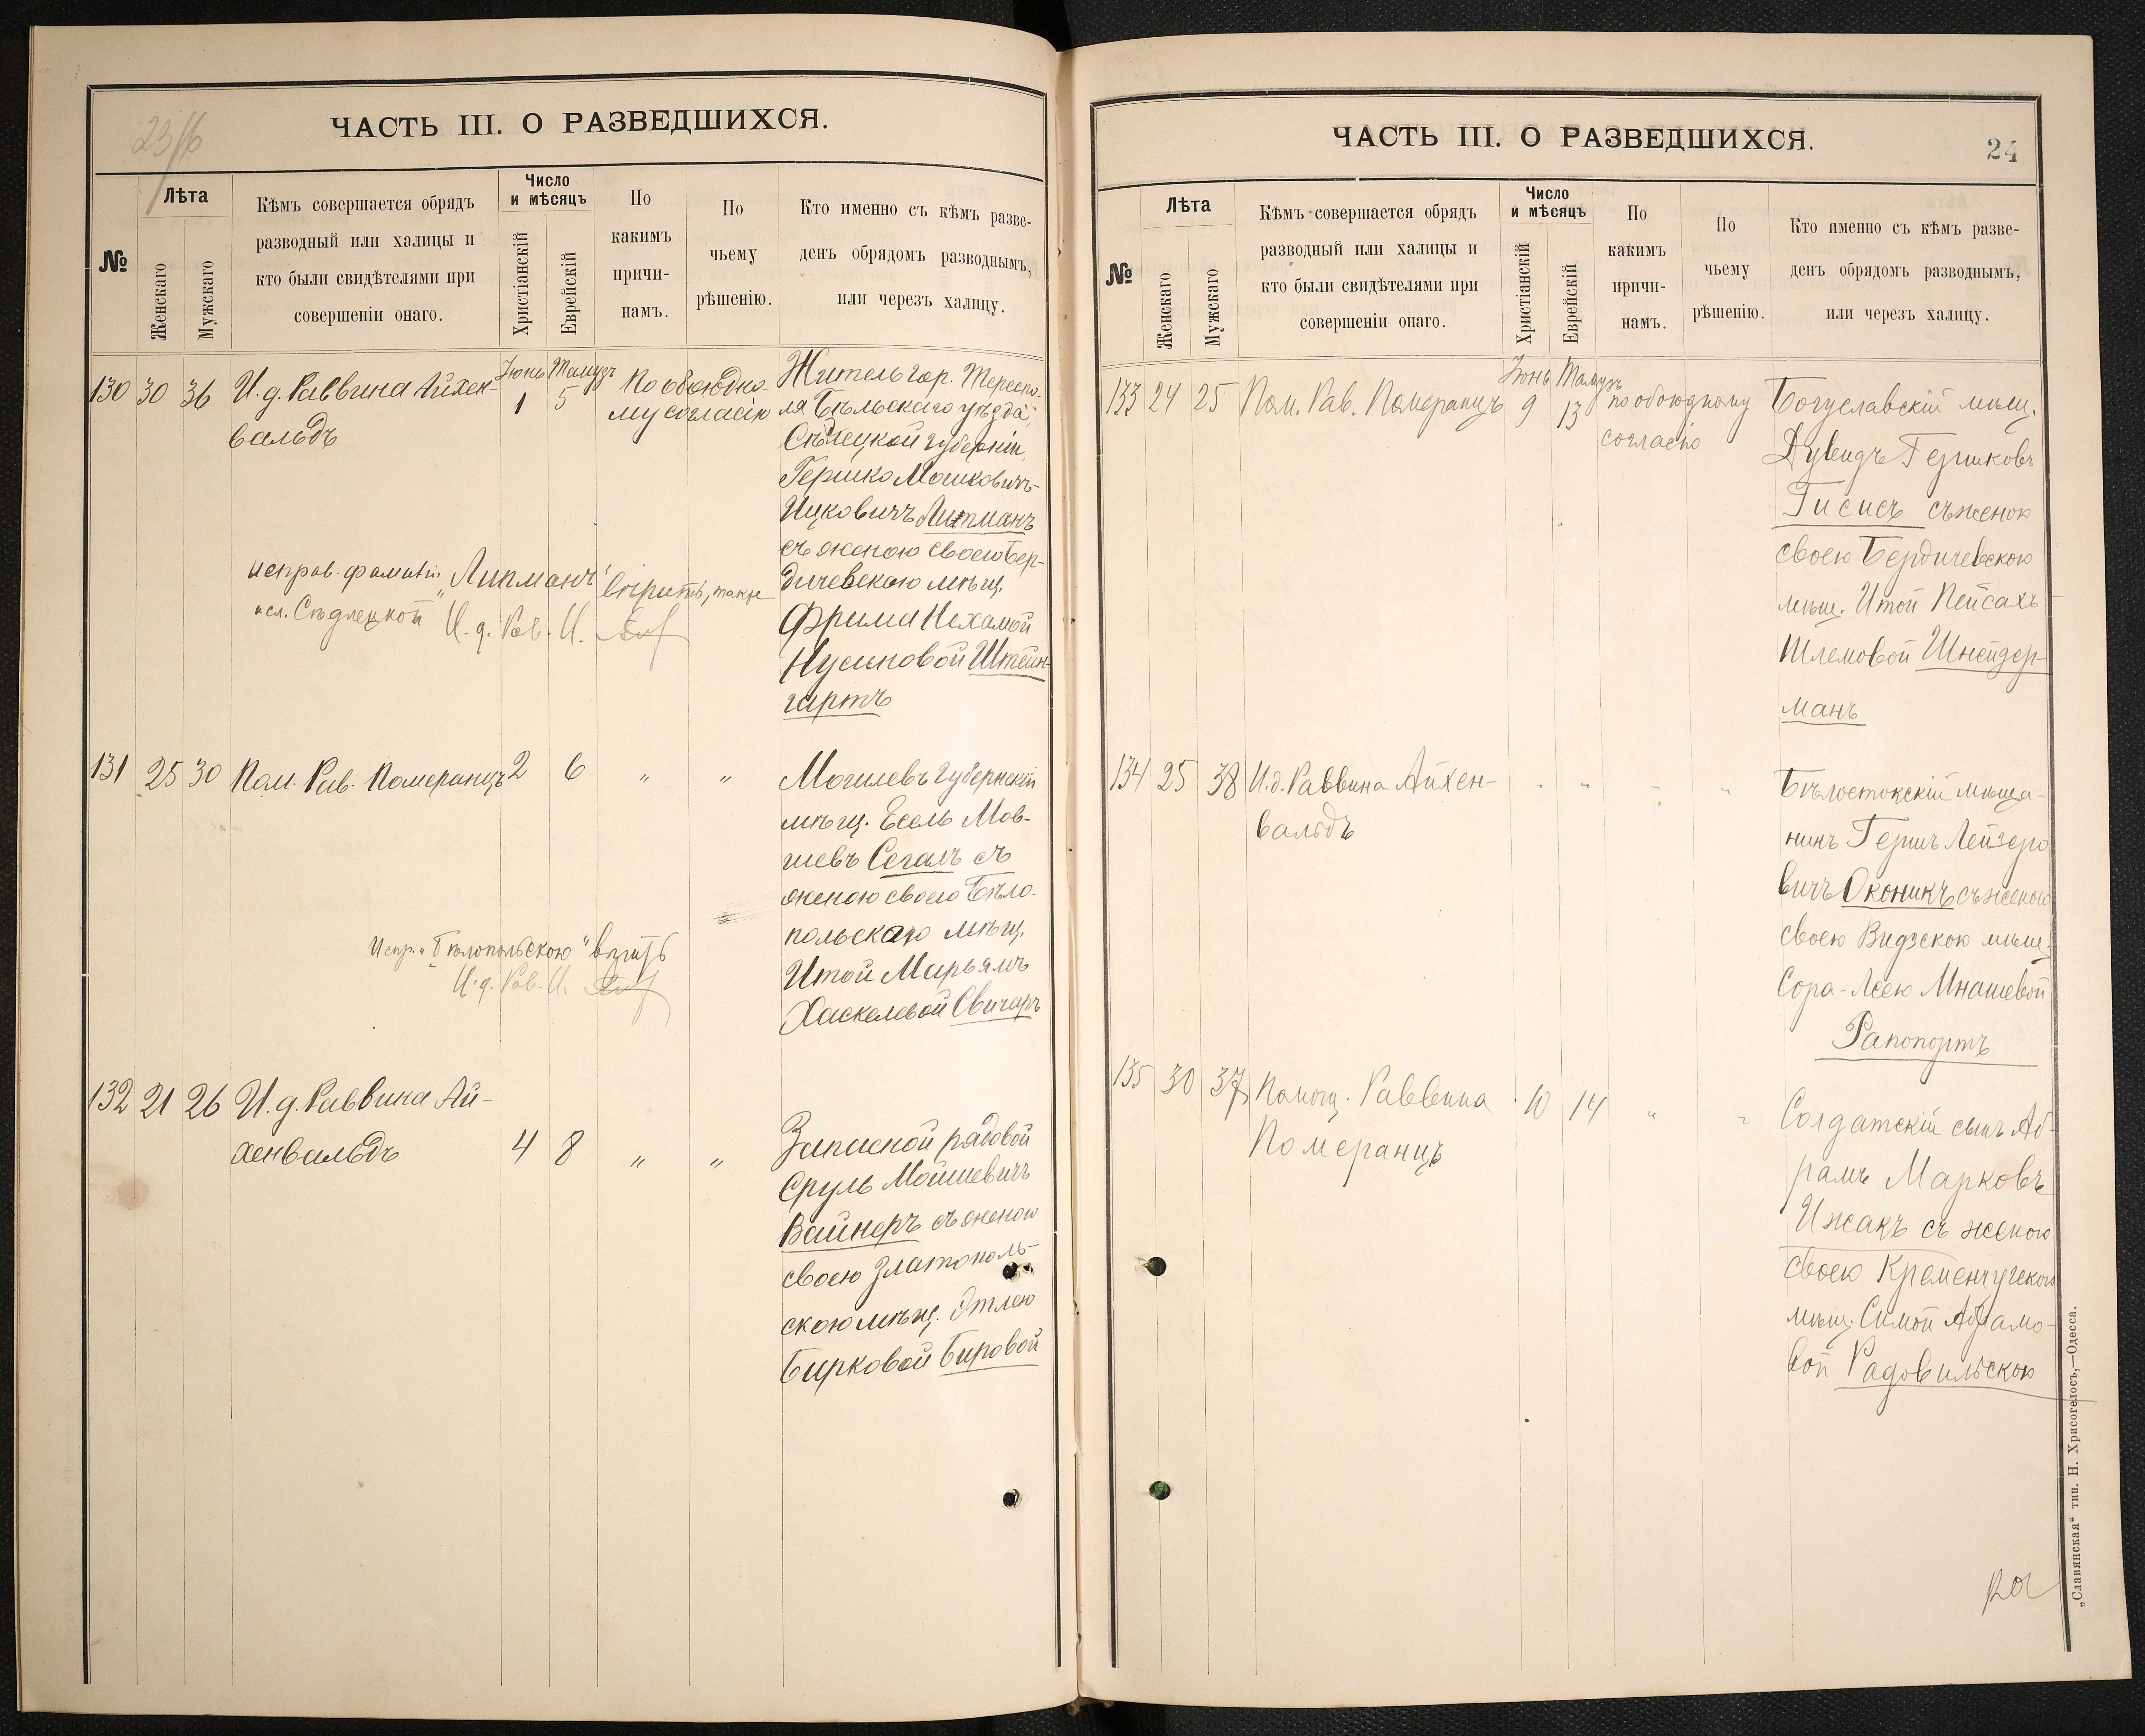 ЧАСТЬ III. О РАЗВЕДШИХСЯ.
№
Лѣта
Женскаго
Мужскаго
Кѣмъ совершается обрядъ
разводный или халицы и
кто были свидѣтелями при
совершеніи онаго.
Число
и мѣсяцъ
Христіанскій
Еврейскій
По
какимъ
причи-
намъ.
По
чьему
рѣшенію.
Кто именно съ кѣмъ разве-
денъ обрядомъ разводнымъ,
или через халицу.
130 30 36 И. д. Раввина Айхен-
вальдъ
Іюнь Тамузъ
1 5
По обоюдно-
му согласію
Житель гор. Тереспо-
ля Бѣльскаго уѣзда,
Сѣдлецкой губерніи,
Гершко Мошковичъ-
Ицковичъ Липманъ
съ женою своею Бер-
дичевскою мѣщ.
Фрима Нехамой
Нусиновой Штейн-
гартъ
исправ. фамилія „Липманъ" вѣрить, также
исл. Сѣдлецкой И. д. Рав. И.
131 25 30 Пом. Рав. Померанцъ 2 6 „ „
Могилевъ губернскій
мѣщ. Есель Мов-
шевъ Сегалъ съ
женою своею Бѣло-
польскаю мѣщ.
Итой Марьямъ
Хаскелевой Свичаръ
Испр. „Бѣлопольскою" вѣрить
И. д. Рав. И.
132 21 26 И. д. Раввина Ай-
хенвальдъ 4 8 „ „
Запасной рядовой
Сруль Мошиевичъ
Вайнеръ съ женою
своею Златополь-
скою мѣщ. Этлею
Бирковой Бировой
ЧАСТЬ III. О РАЗВЕДШИХСЯ.
24
№
Лѣта
Женскаго
Мужскаго
Кѣмъ совершается обрядъ
разводный или халицы и
кто были свидѣтелями при
совершеніи онаго.
Число
и мѣсяцъ
Христіанскій
Еврейскій
По
какимъ
причи-
намъ.
По
чьему
рѣшенію.
Кто именно съ кѣмъ разве-
денъ обрядомъ разводнымъ,
или черезъ халицу.
133 24 25 Пом. Рав. Померанцъ
Іюнь Тамузъ
9 13
по обоюдному
согласію
Богуславскій мѣщ.
Дувидъ Гершковъ
Гисисъ съ женою
своею Бердичевскою
мѣщ. Итой Пейсахъ
Шлемовой Шнейдер-
манъ
134 25 38 И. д. Раввина Айхен-
вальдъ „ „ „ „
Бѣлостокскій мѣща-
нинъ Гершъ Лейзеро
вичъ Оконикъ съ женою
своею Видзскою мѣщ.
Сора-Леею Мнашевой
Рапопортъ
135 30 37 Помощ. Раввина
Померанцъ 10 14 „ „
Солдатскій сынъ Аб-
рамъ Марковъ
Ижакъ съ женою
своею Кременчугскою
мѣщ. Симой Абрамо-
вой Радовильскою
„Славянская" тип. Н. Хрисогелосъ,—Одесса.